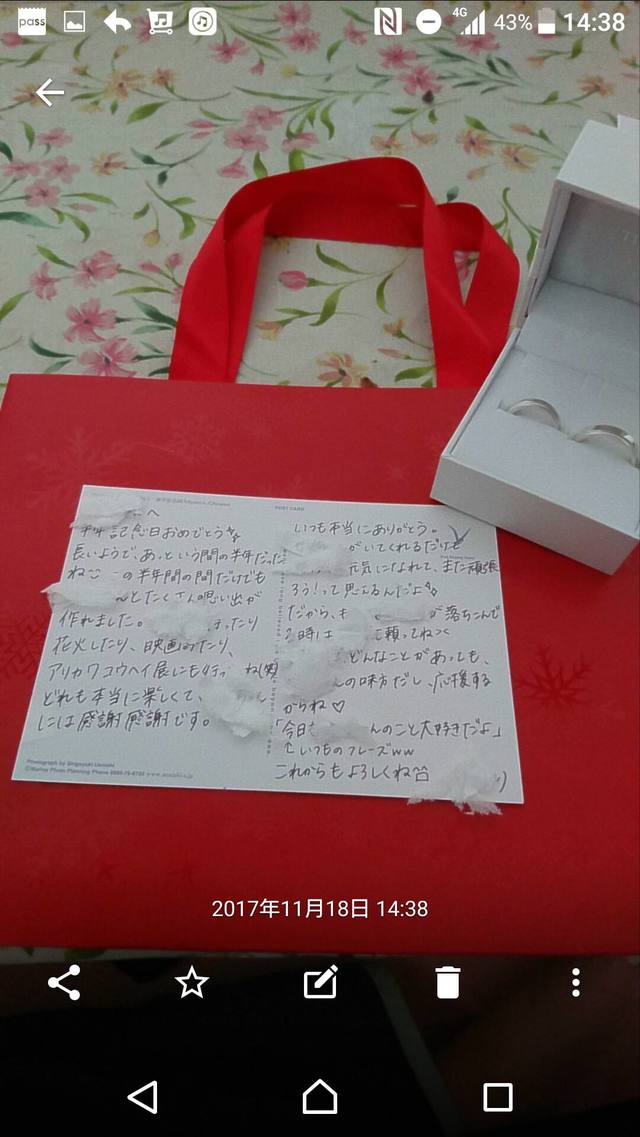 pass
4G
43%
14:38
へ
半年記念日おめでとう
長いようで、あっという間の半年だった
ね この半年間の間だけでも
とたくさん思い出が
作れました。 行ったり
花火したり、映画みたり、
アリカワコウヘイ展にも行っ ね(笑)
どれも本当に楽しくて、 ん
には感謝感謝です。
Photograph by Shigeyuki Uenishi
POST CARD
いつも本当にありがとう。
がいてくれるだけで
元気になれて、また頑張
ろう!って思えるんだよ
だから、も が落ちこんで
時は 頼ってねっ
どんなことがあっても、
んの味方だし、応援する
からね♡
「今日も んのこと大好きだよ」
↑いつものフレーズww
これからもよろしくね
2017年11月18日 14:38